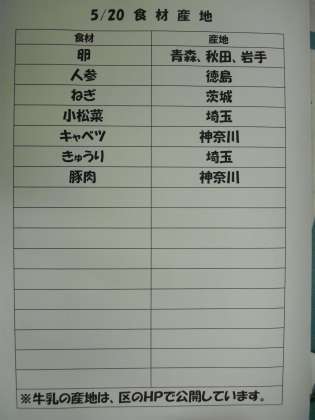 5/20 食材産地
食材 産地
卵 青森、秋田、岩手
人参 徳島
ねぎ 茨城
小松菜 埼玉
キャベツ 神奈川
きゅうり 埼玉
豚肉 神奈川
※牛乳の産地は、区のHPで公開しています。